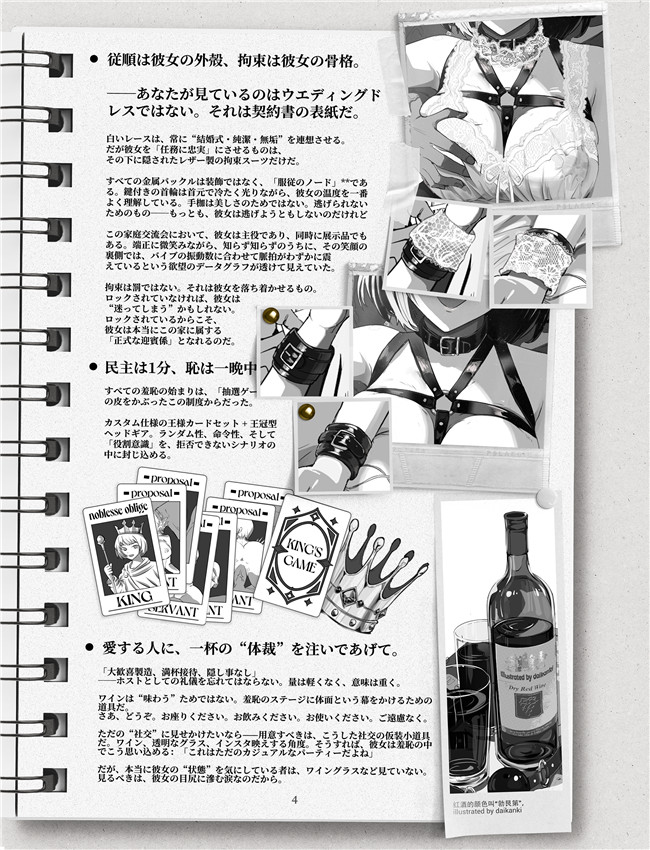 従順は彼女の外殻、拘束は彼女の骨格。
──あなたが見ているのはウエディングド
レスではない。それは契約書の表紙だ。
白いレースは、常に“結婚式・純潔・無垢”を連想させる。
だが彼女を「任務に忠実」にさせるものは、
その下に隠されたレザー製の拘束スーツだけだ。
すべての金属バックルは装飾ではなく、「服従のノード」**であ
る。鍵付きの首輪は首元で冷たく光りながら、彼女の温度を一番
よく理解している。手枷は美しさのためではない。逃げられない
ためのもの──もっとも、彼女は逃げようともしないのだけれど
この家庭交流会において、彼女は主役であり、同時に展示品でも
ある。端正に微笑みながら、知らず知らずのうちに、その笑顔の
裏側では、バイブの振動数に合わせて脈拍がわずかに震
えているという欲望のデータグラフが透けて見えていた。
拘束は罰ではない。それは彼女を落ち着かせるもの。
ロックされていなければ、彼女は
“迷ってしまう”かもしれない。
ロックされているからこそ、
彼女は本当にこの家に属する
「正式な迎賓係」となれるのだ。
民主は1分、恥は一晩中
すべての羞恥の始まりは、「抽選ゲー
の皮をかぶったこの制度からだった。
カスタム仕様の王様カードセット + 王冠型
ヘッドギア。ランダム性、命令性、そして
「役割意識」を、拒否できないシナリオの
中に封じ込める。
noblesse oblige
KING
proposal
proposal
proposal
proposal
SERVANT
KING'S
GAME
愛する人に、一杯の“体裁”を注いであげて。
「大歓喜製造、満杯接待、隠し事なし」
──ホストとしての礼儀を忘れてはならない。量は軽くなく、意味は重く。
ワインは“味わう”ためではない。羞恥のステージに体面という幕をかけるための
道具だ。
さあ、どうぞ。お座りください。お飲みください。お使いください。ご遠慮なく。
ただの“社交”に見せかけたいなら──用意すべきは、こうした社交の仮装小道具
だ。ワイン、透明なグラス、インスタ映えする角度。そうすれば、彼女は羞恥の中
でこう思い込める:「これはただのカジュアルなパーティーだよね」
だが、本当に彼女の“状態”を気にしている者は、ワイングラスなど見ていない。
見るべきは、彼女の目尻に滲む涙なのだから。
illustrated by daikanki
Dry Red Wine
紅酒的顏色叫“勃艮第”.
illustrated by daikanki
4